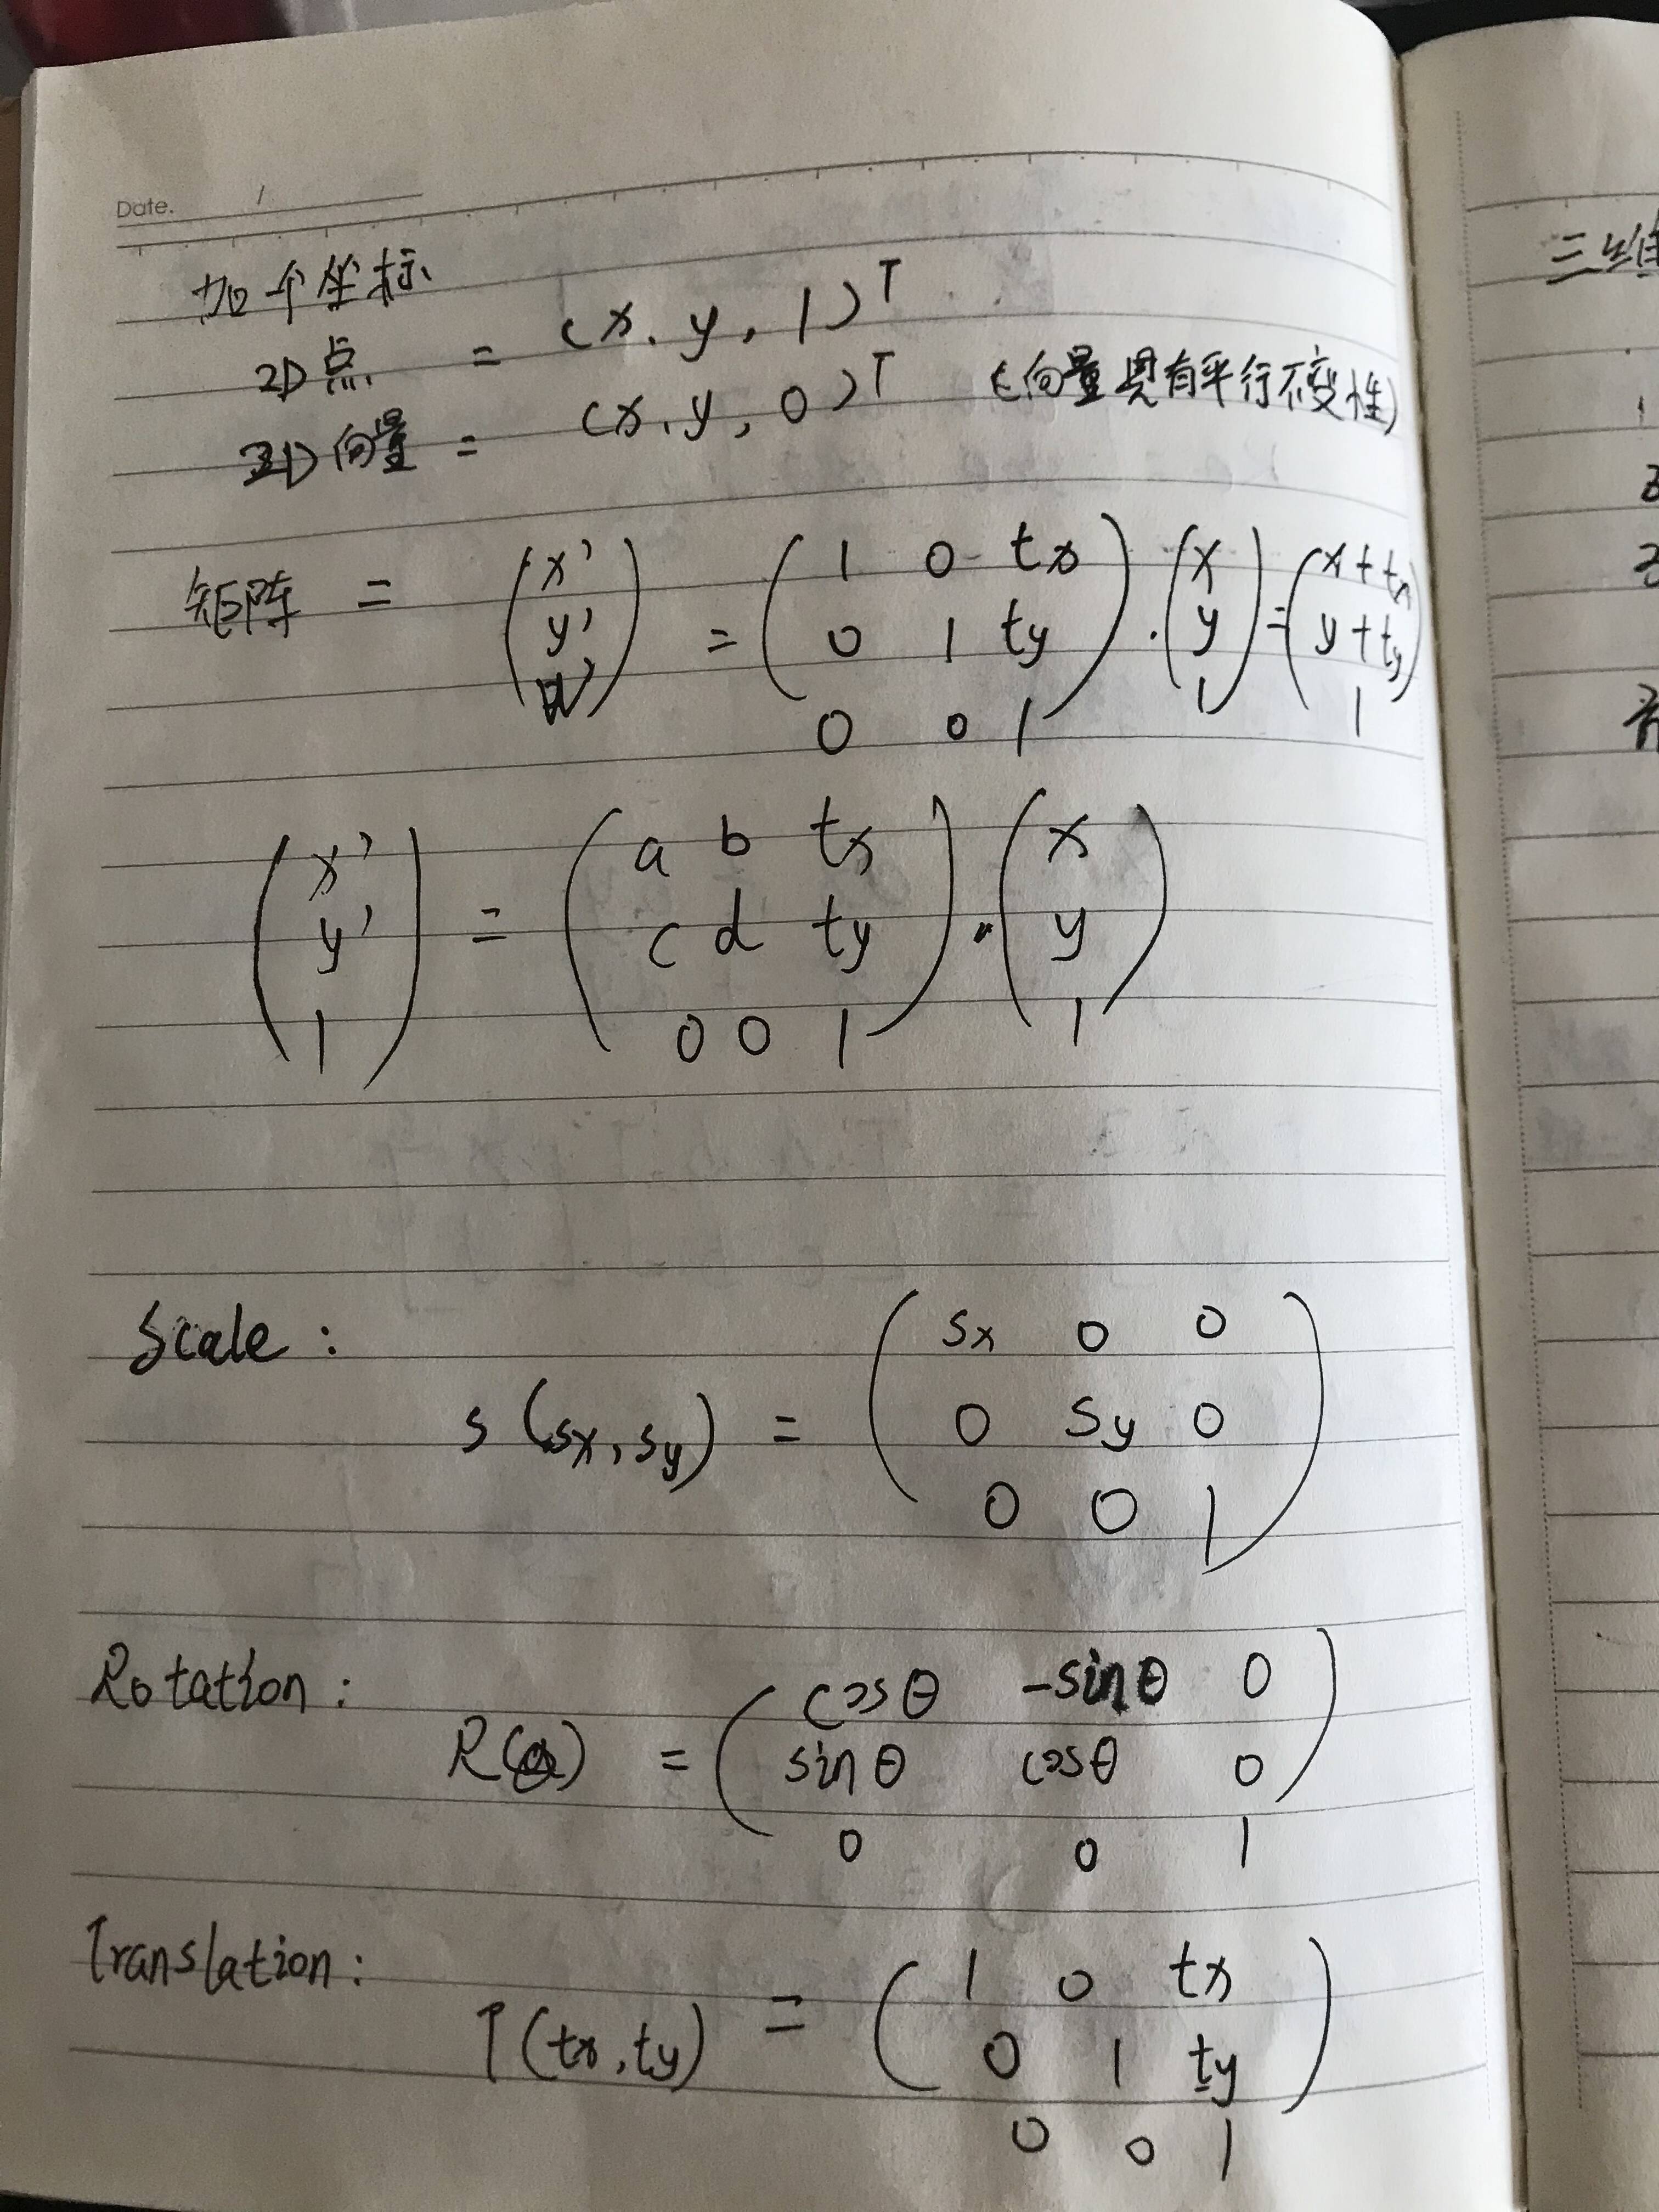 Date. /
加个坐标
2D点 = (x, y, 1)ᵀ
2D向量 = (x, y, 0)ᵀ (向量具有平行不变性)
矩阵 = (x' y' w') = (1 0 tx
0 1 ty
0 0 1) · (x y 1) = (x+tx y+ty 1)
(x' y' 1) = (a b tx
c d ty
0 0 1) · (x y 1)
Scale:
s(sx, sy) = (sx 0 0
0 sy 0
0 0 1)
Rotation:
R(θ) = (cosθ -sinθ 0
sinθ cosθ 0
0 0 1)
Translation:
T(tx, ty) = (1 0 tx
0 1 ty
0 0 1)
三维